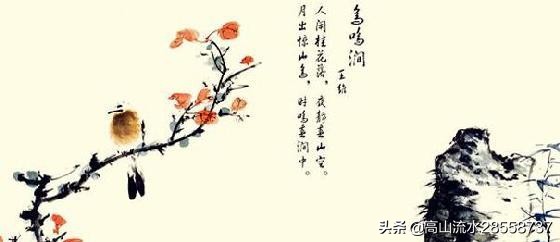 鸟鸣涧
王维
人闲桂花落，夜静春山空。
月出惊山鸟，时鸣春涧中。
头条 @高山流水28558737